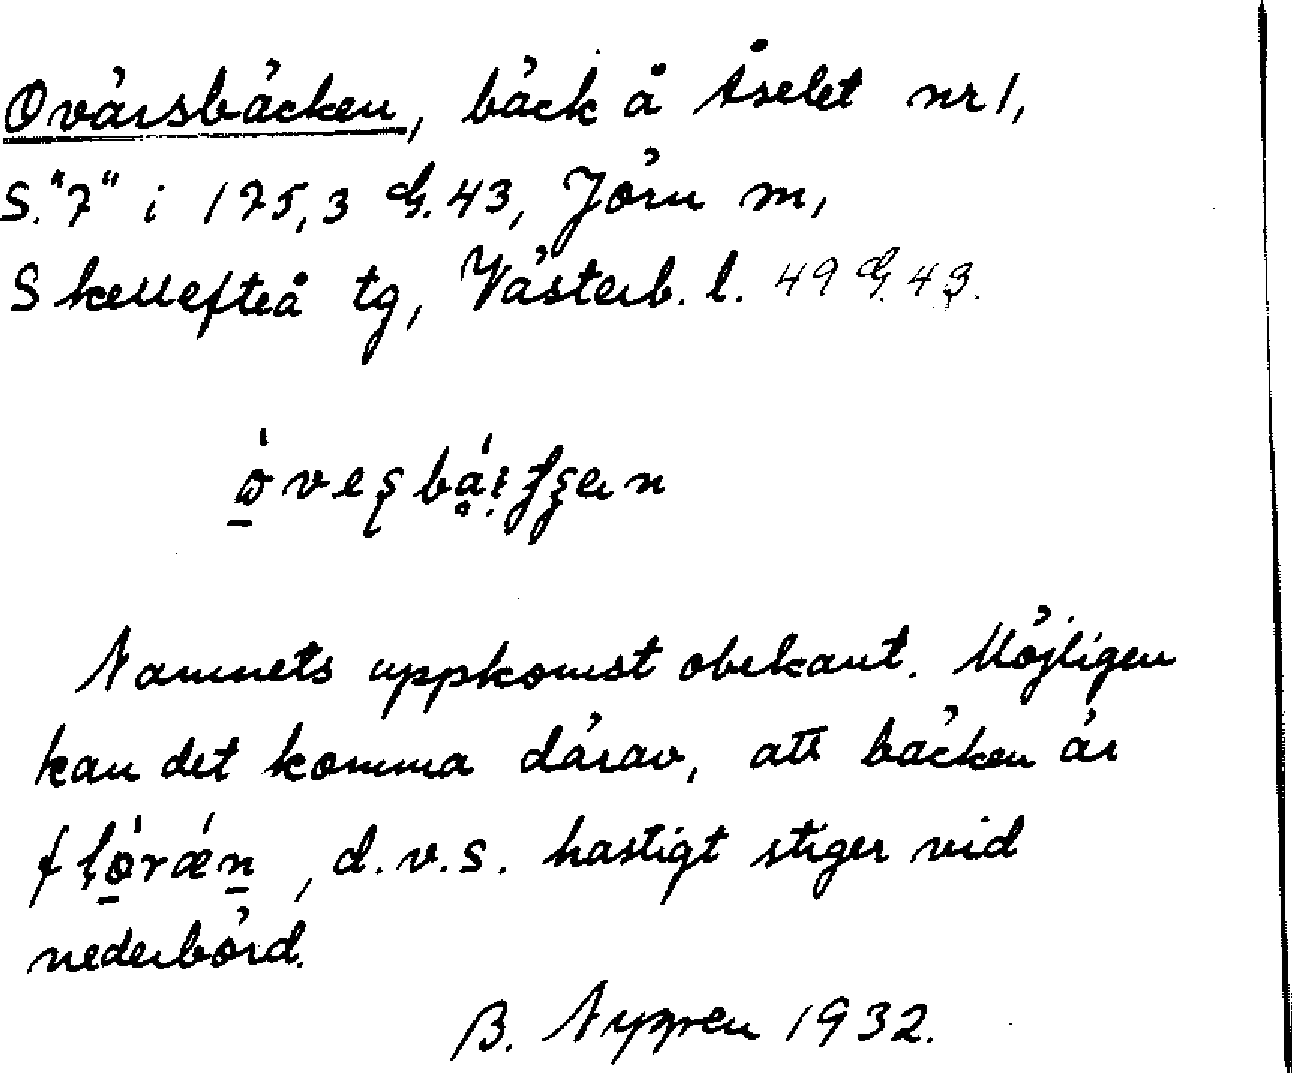 Ovärsbäcken, bäck å Åselet nr 1,
S. "7" i 175,3 G. 43, Jörn m,
Skellefteå tg, Västerb. l. 49 G. 43.
Namnets uppkomst obekant. Möjligen
kan det komma därav, att bäcken är
, d.v.s. hastigt stiger vid
nederbörd.
B. Nygren 1932.